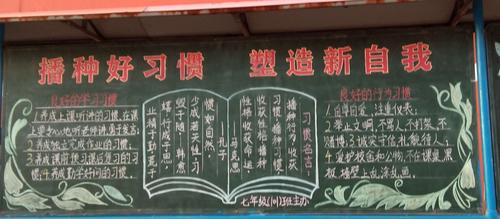 播种好习惯 塑造新自我
良好的学习习惯
1 养成上课听讲的习惯,在课
上要专心地听老师讲,勇于发言;
2 养成独立完成作业的习惯;
3 养成课前预习课后复习的习
惯;4 养成勤学好问的习惯.
习惯名言
播种行为,收获
习惯;播种习惯,
收获性格;播种
性格,收获命运.
——马克思
少成若天性,习
惯如自然.
——孔子
行成于思,
毁于随.——韩愈
业精于勤,荒于
良好的行为习惯
1 自尊自爱,注重仪表;
2 举止文明,不骂人,不打架,不
赌博;3 诚实守信,礼貌待人;
4 爱护校舍和公物,不在课桌,黑
板,墙壁上乱涂乱画.
七年级(10)班主办